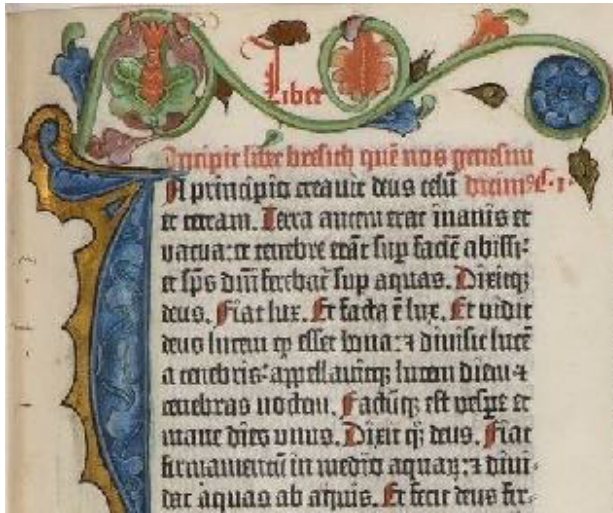 Liber
Incipit liber bresith quē nos genesim
A principio creavit deus celū dicim⁹ C. 1.
et terram. Terra autem erat inanis et
vacua: et tenebre erāt sup faciē abissi:
et sp̄s dn̄i ferebat̄ sup aquas. Dixitq̨
deus. Fiat lux. Et facta ē lux. Et vidit
deus lucem q̄ esset bona: ⁊ divisit lucē
a tenebris: appellavitq̨ lucem diem ⁊
tenebras noctem. Factūq̨ est vespe et
mane dies unus. Dixit q̨ deus. Fiat
firmamentū in medio aquaꝝ: ⁊ divi-
dat aquas ab aquis. Et fecit deus fir-